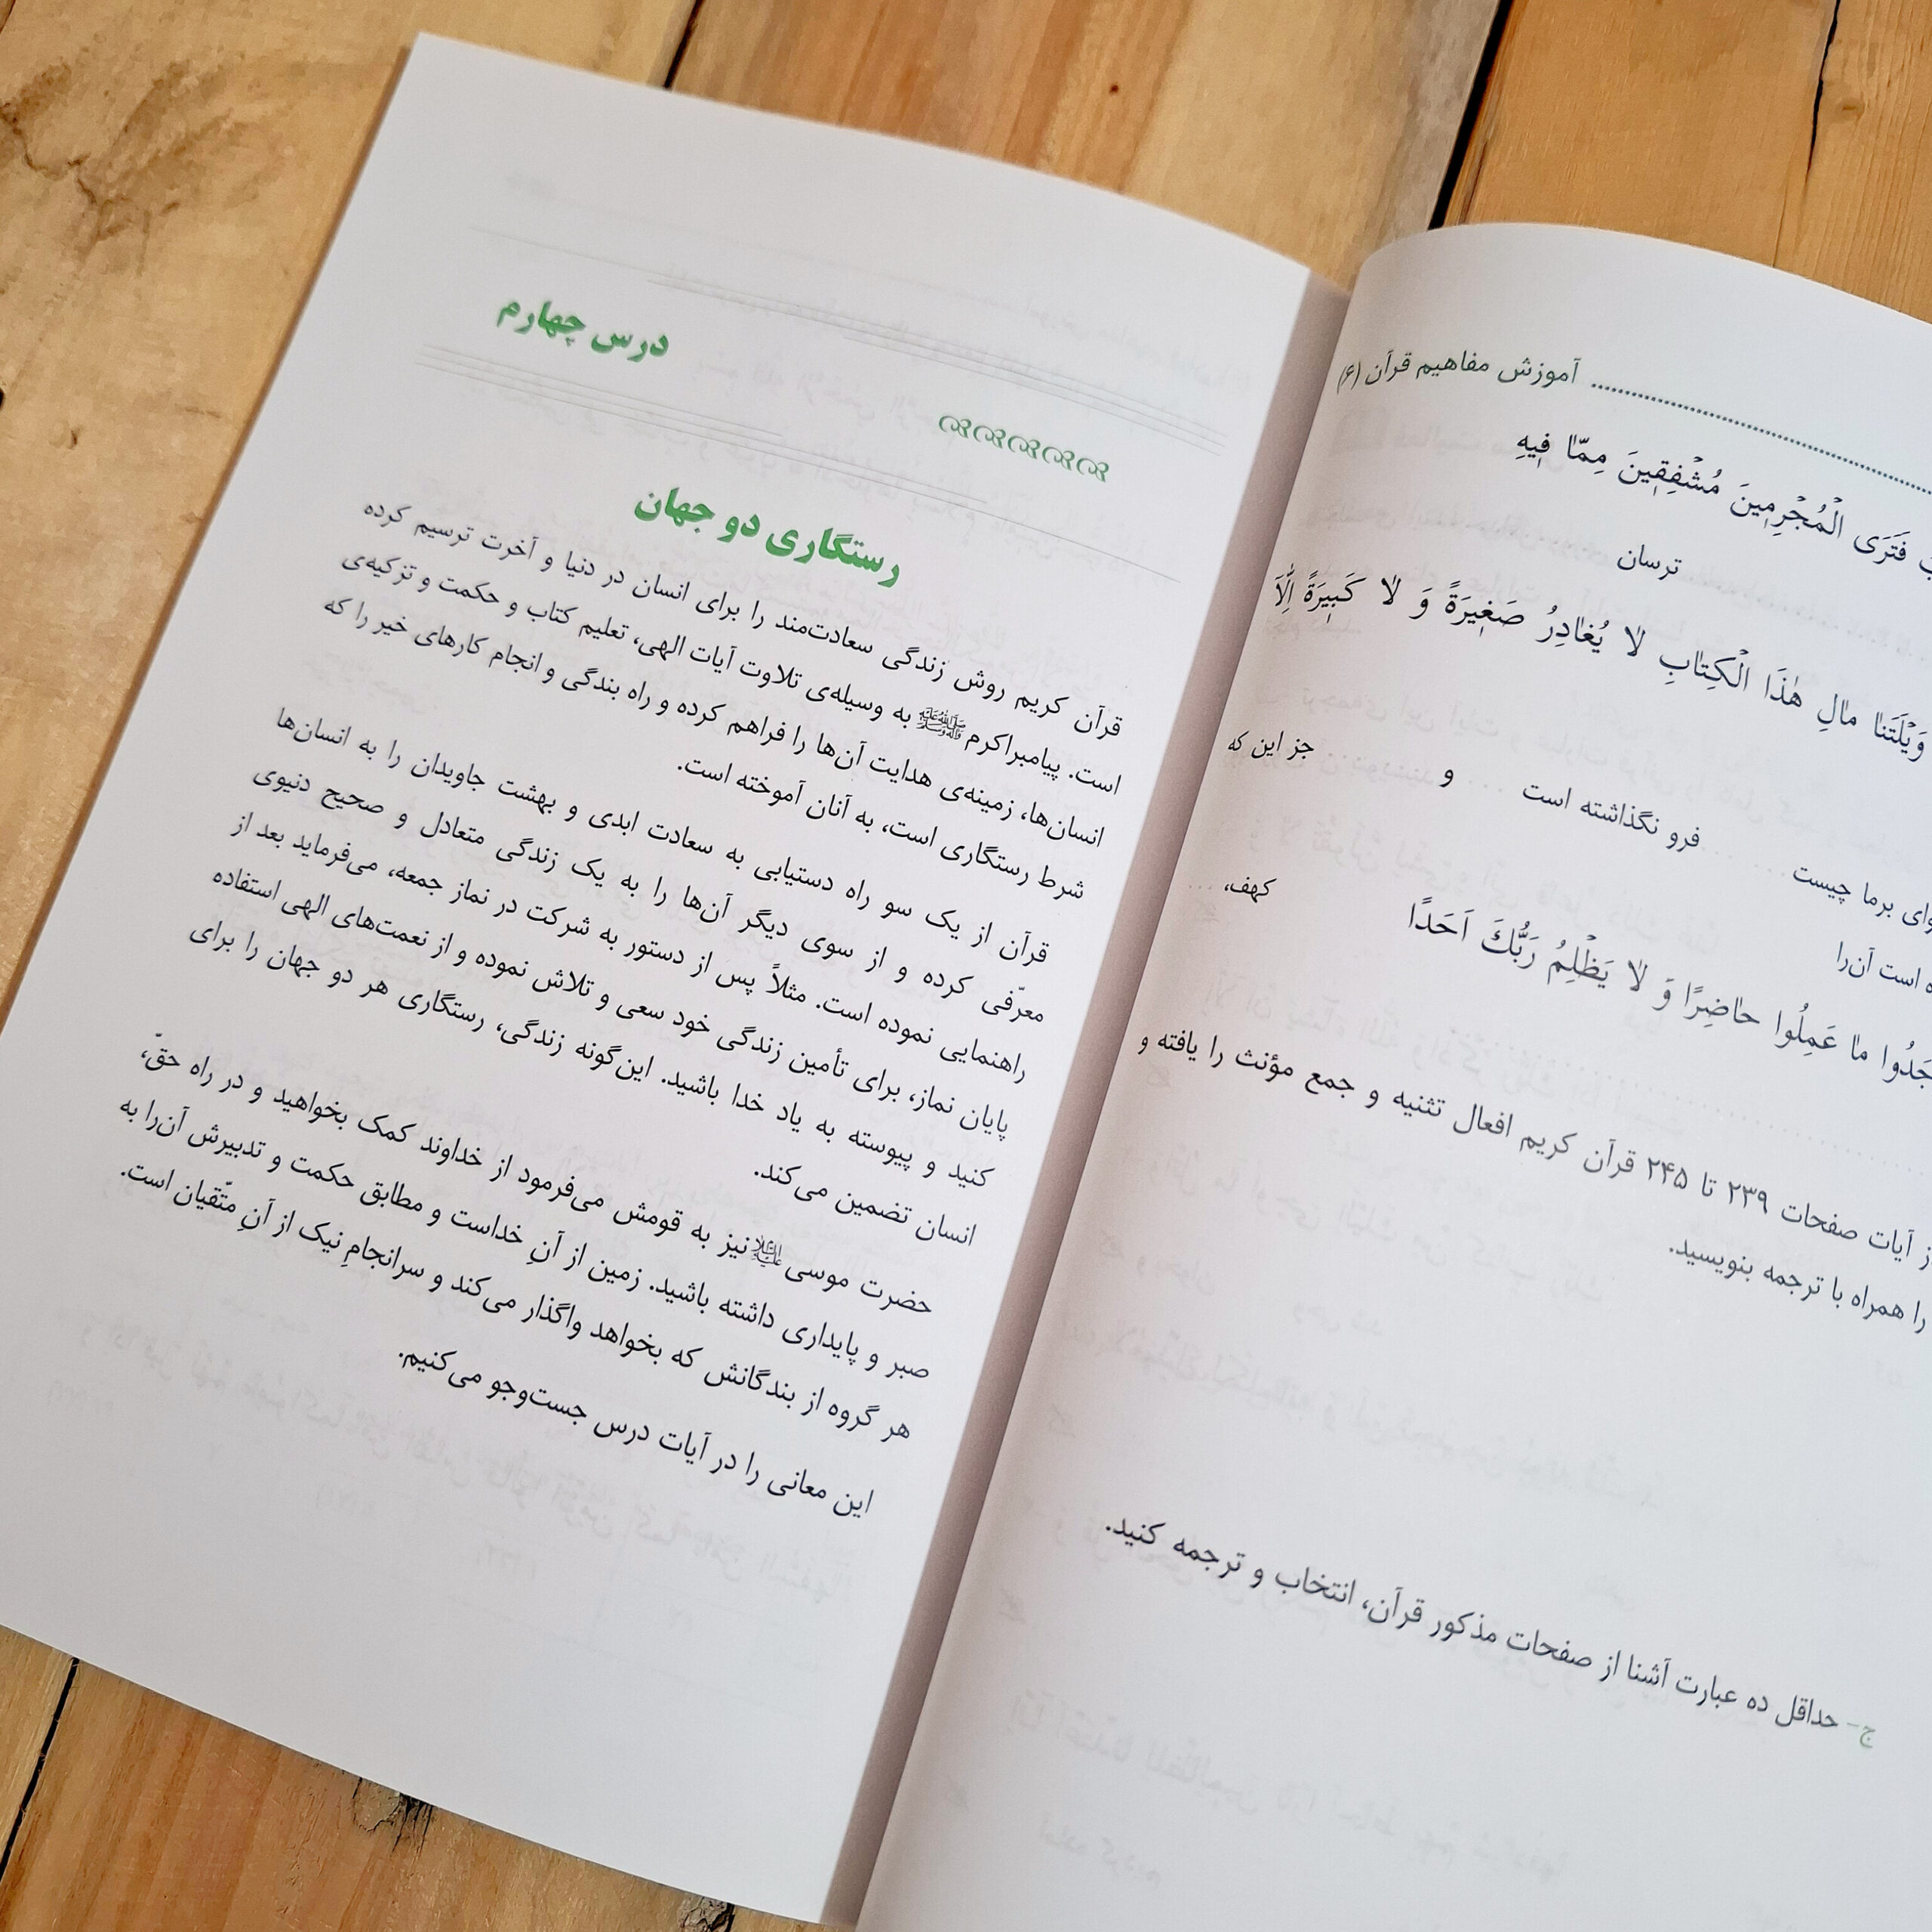 آموزش مفاهیم قرآن (۶)
فَتَرَى الْمُجْرِمِينَ مُشْفِقِينَ مِمَّا فِيهِ
ترسان
وَيْلَتَنا مالِ هٰذَا الْكِتابِ لا يُغادِرُ صَغِيرَةً وَ لا كَبِيرَةً اِلّآ
وای برما چیست فرو نگذاشته است و جز این که
است آن‌را
کهف، ...
ما عَمِلُوا حاضِرًا وَ لا يَظْلِمُ رَبُّكَ اَحَدًا
آیات صفحات ۲۳۹ تا ۲۴۵ قرآن کریم افعال تثنیه و جمع مؤنث را یافته و
را همراه با ترجمه بنویسید.
ج- حداقل ده عبارت آشنا از صفحات مذکور قرآن، انتخاب و ترجمه کنید.
درس چهارم
رستگاری دو جهان
قرآن کریم روش زندگی سعادت‌مند را برای انسان در دنیا و آخرت ترسیم کرده
است. پیامبراکرم ﷺ به وسیله‌ی تلاوت آیات الهی، تعلیم کتاب و حکمت و تزکیه‌ی
انسان‌ها، زمینه‌ی هدایت آن‌ها را فراهم کرده و راه بندگی و انجام کارهای خیر را که
شرط رستگاری است، به آنان آموخته است.
قرآن از یک سو راه دستیابی به سعادت ابدی و بهشت جاویدان را به انسان‌ها
معرّفی کرده و از سوی دیگر آن‌ها را به یک زندگی متعادل و صحیح دنیوی
راهنمایی نموده است. مثلاً پس از دستور به شرکت در نماز جمعه، می‌فرماید بعد از
پایان نماز، برای تأمین زندگی خود سعی و تلاش نموده و از نعمت‌های الهی استفاده
کنید و پیوسته به یاد خدا باشید. این‌گونه زندگی، رستگاری هر دو جهان را برای
انسان تضمین می‌کند.
حضرت موسی علیه‌السلام نیز به قومش می‌فرمود از خداوند کمک بخواهید و در راه حقّ،
صبر و پایداری داشته باشید. زمین از آنِ خداست و مطابق حکمت و تدبیرش آن‌را به
هر گروه از بندگانش که بخواهد واگذار می‌کند و سرانجامِ نیک از آنِ متّقیان است.
این معانی را در آیات درس جست‌وجو می‌کنیم.